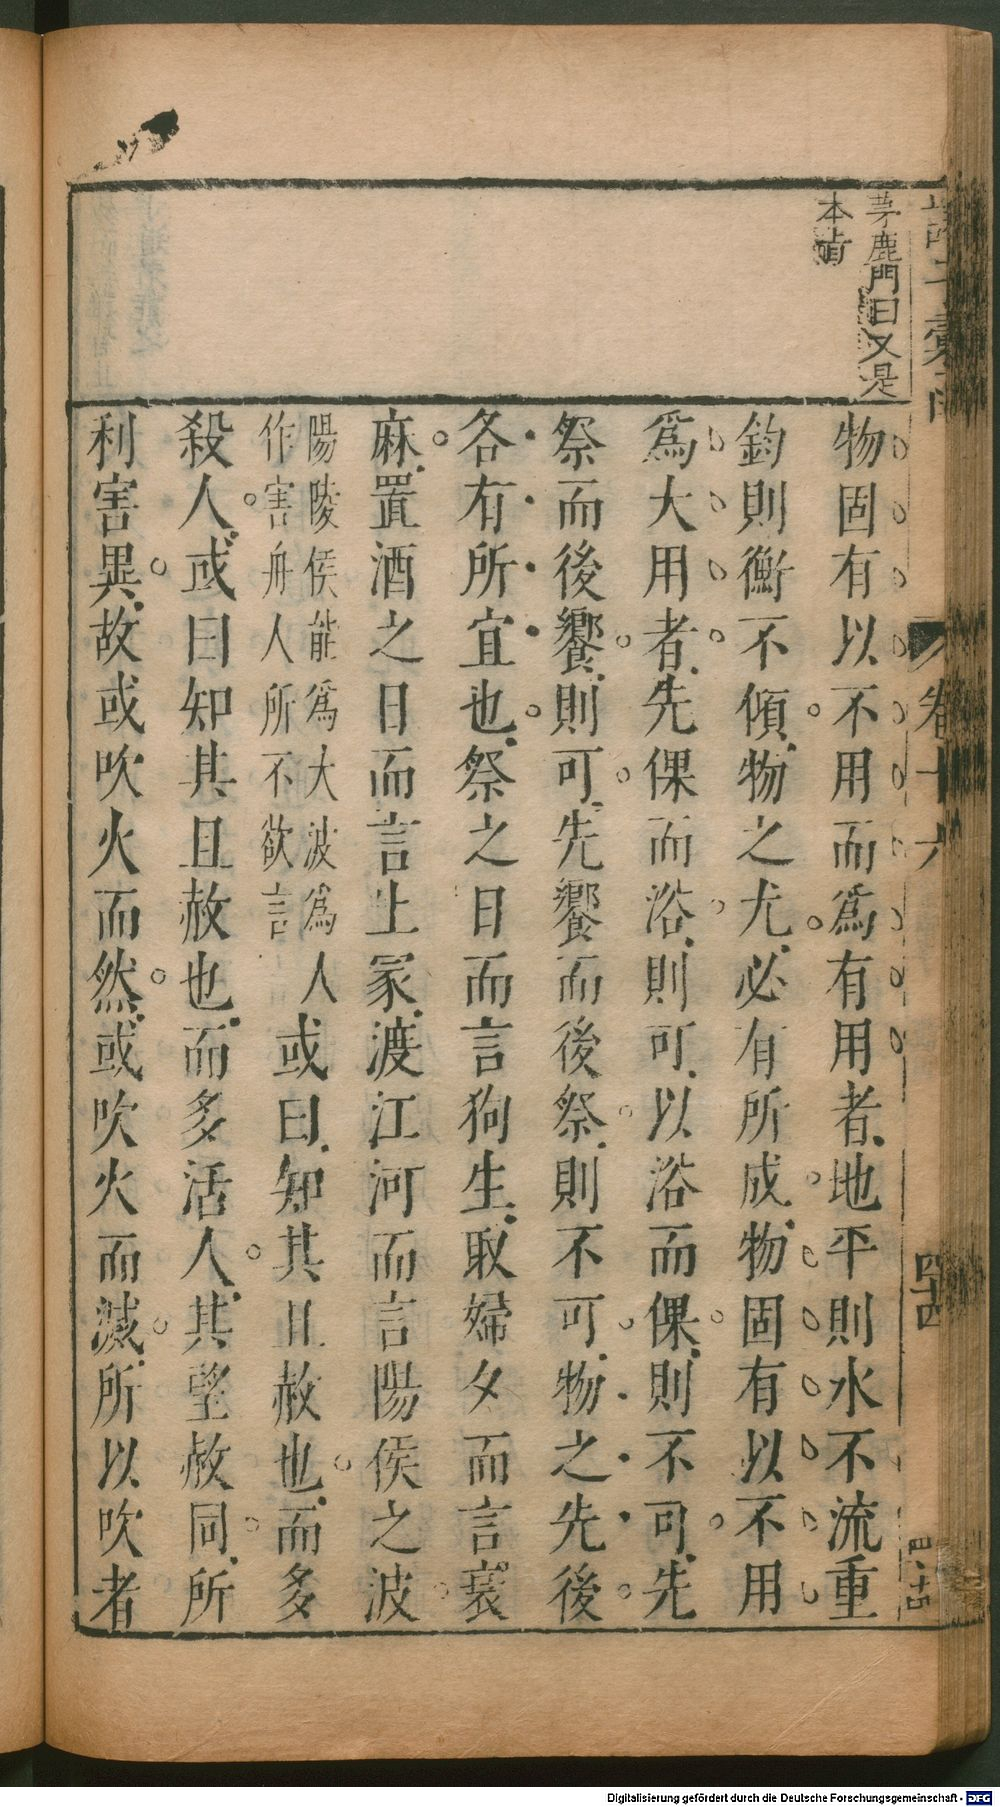 茅鹿門曰又是
本㫖
卷十六
物固有以不用而爲有用者地平則水不流重
鈞則衡不傾物之尤必有所成物固有以不用
爲大用者先倮而浴則可以浴而倮則不可先
祭而後饗則可先饗而後祭則不可物之先後
各有所宜也祭之日而言狗生取婦夕而言衰
麻置酒之日而言上冢渡江河而言陽侯之波
陽陵侯能爲大波爲人
作害舟人所不欲言
或曰知其且赦也而多
殺人或曰知其且赦也而多活人其望赦同所
利害異故或吹火而然或吹火而滅所以吹者
Digitalisierung gefördert durch die Deutsche Forschungsgemeinschaft - DFG